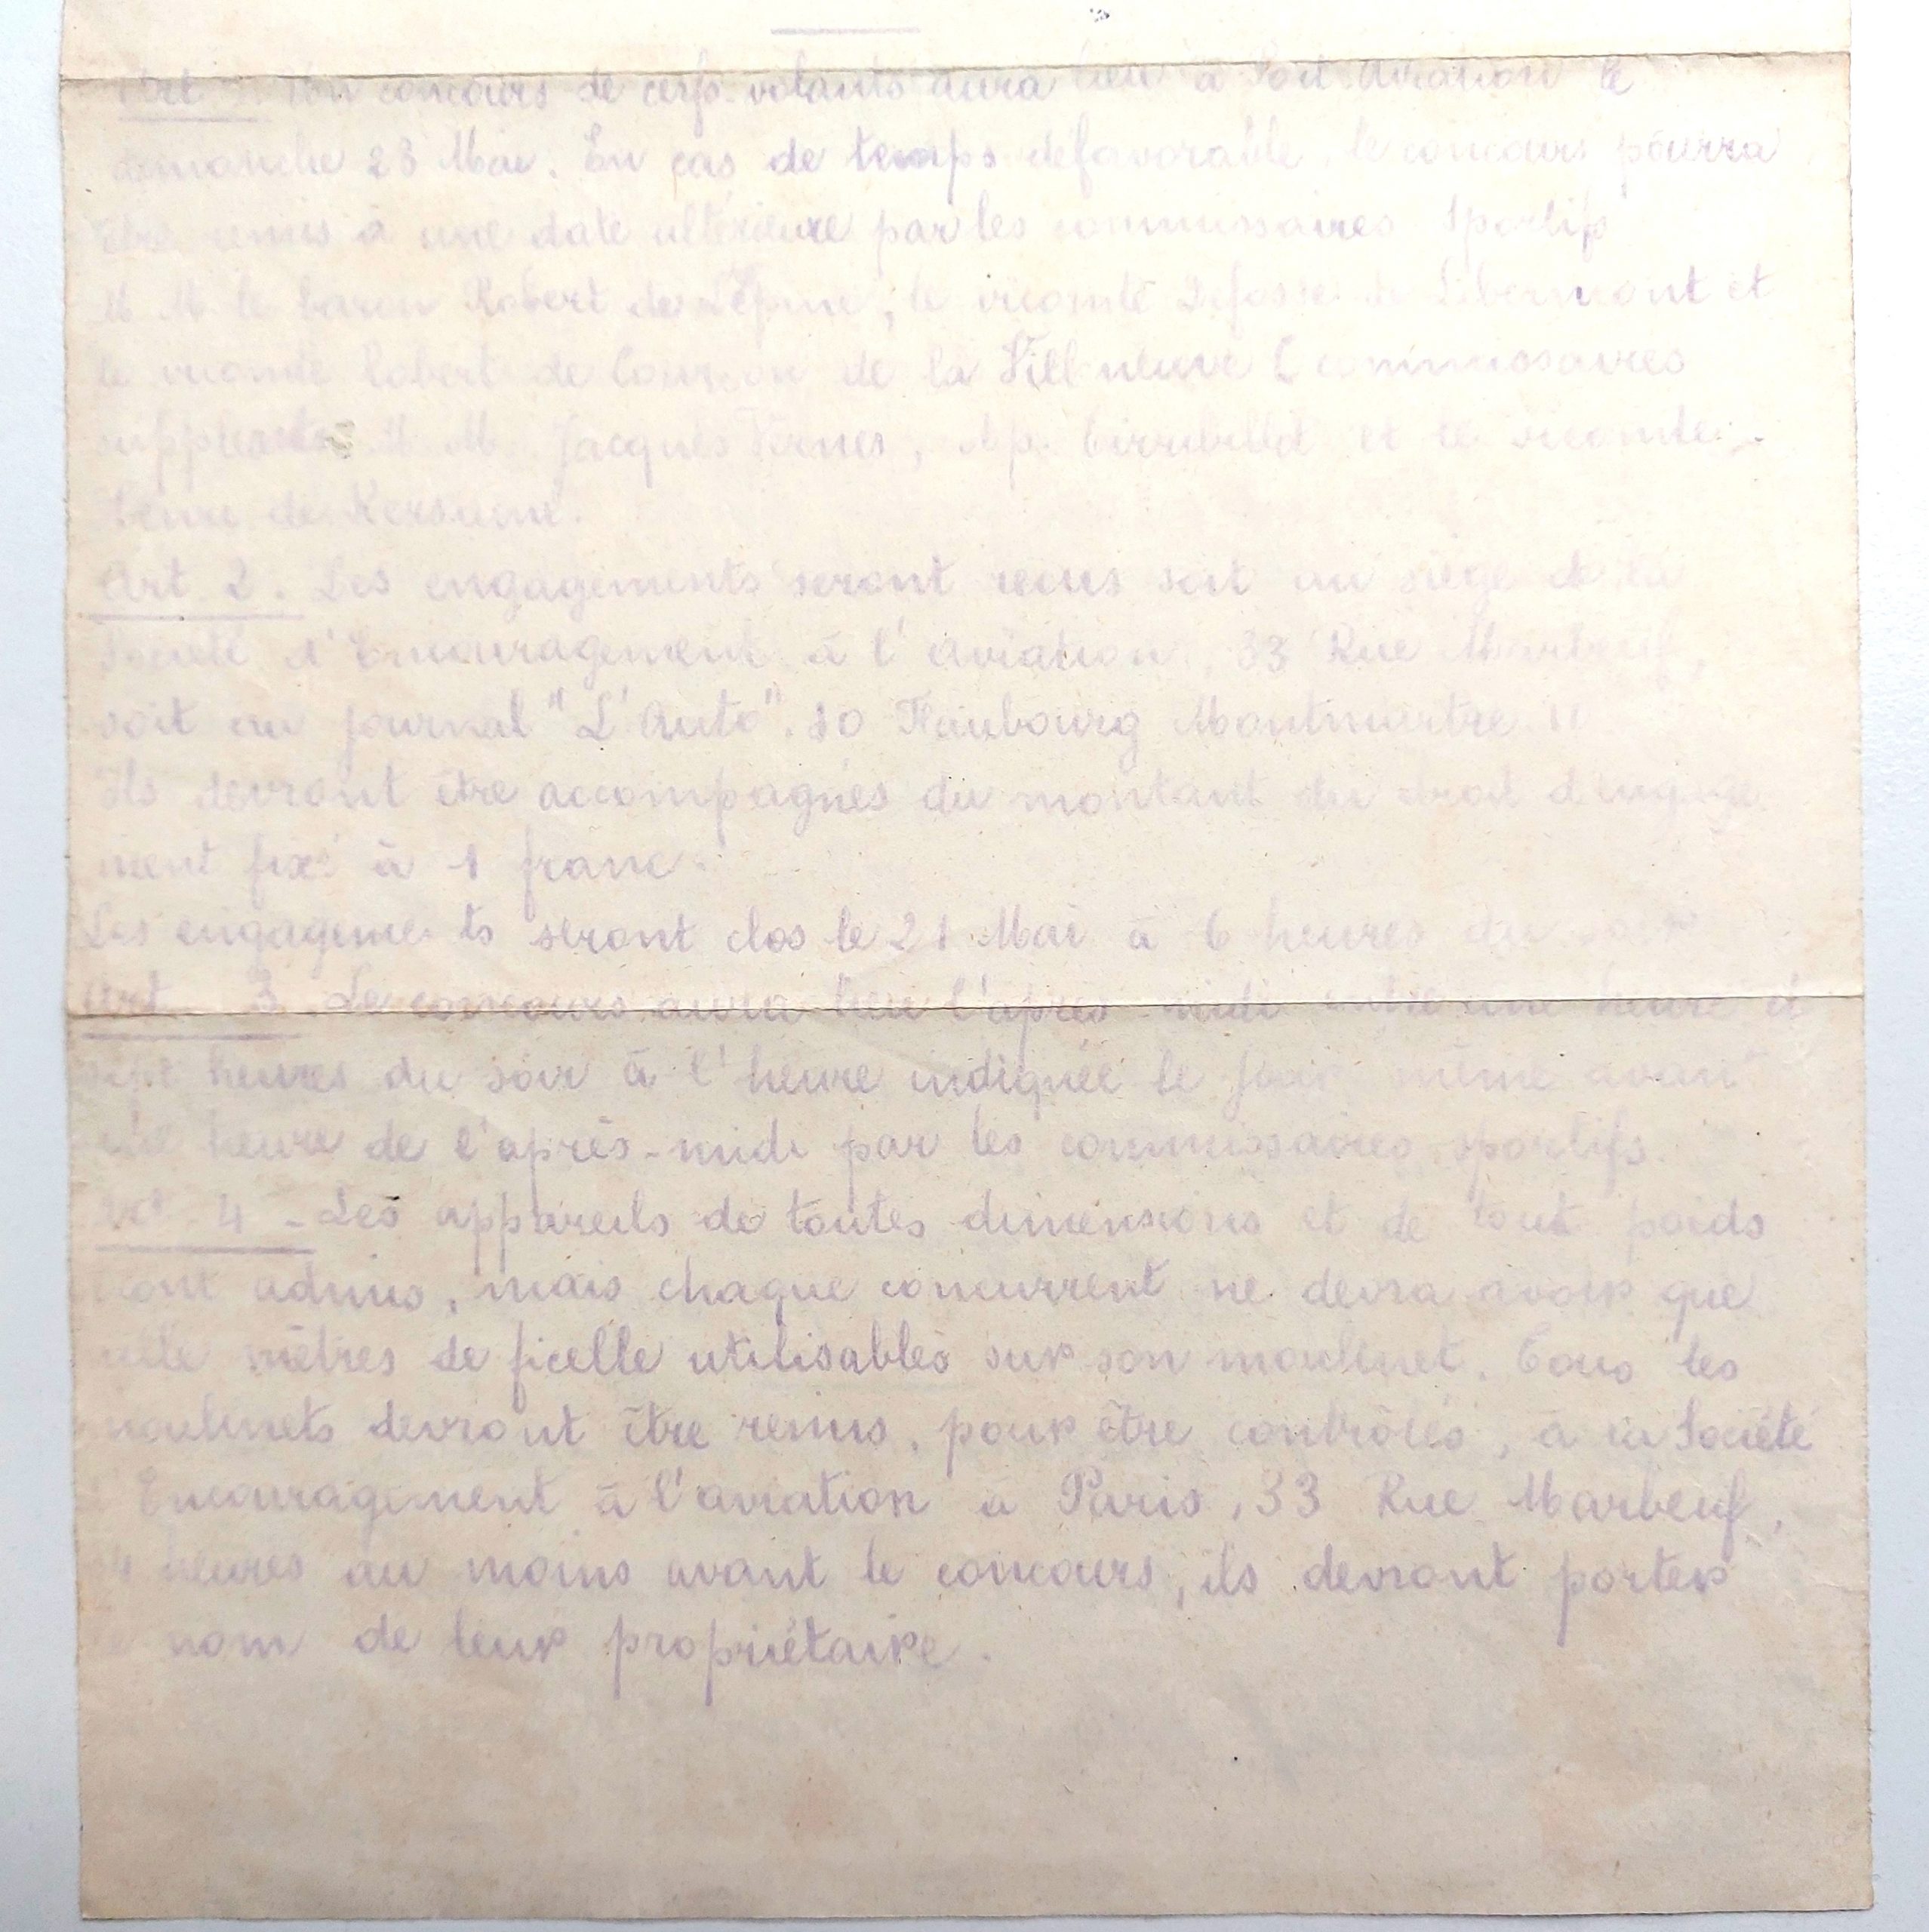 Art 1. Un concours de cerfs-volants aura lieu à Port-Aviation le
dimanche 23 Mai. En cas de temps défavorable, le concours pourra
être remis à une date ultérieure par les commissaires Sportifs
M M le baron Robert de Lépine, le vicomte de Libermont et
le vicomte Robert de Courson de la Villeneuve commissaires
suppléants M M. Jacques Vernes, et le vicomte
de Kersaint.
Art. 2. Les engagements seront reçus soit au siège de la
Société d'Encouragement à l'aviation, 33 Rue Marbeuf,
soit au journal "L'Auto". 10 Faubourg Montmartre.
Ils devront être accompagnés du montant du droit d'engage
ment fixé à 1 franc.
Les engageme ts seront clos le 21 Mai à 6 heures du soir
Art. 3. Le concours aura lieu l'après-midi entre une heure et
sept heures du soir à l'heure indiquée le jour même avant
une heure de l'après-midi par les commissaires sportifs.
Art 4 - Les appareils de toutes dimensions et de tout poids
sont admis, mais chaque concurrent ne devra avoir que
mille mètres de ficelle utilisables sur son moulinet. Tous les
moulinets devront être remis, pour être contrôlés, à la Société
d'Encouragement à l'aviation à Paris, 33 Rue Marbeuf,
24 heures au moins avant le concours, ils devront porter
le nom de leur propriétaire.